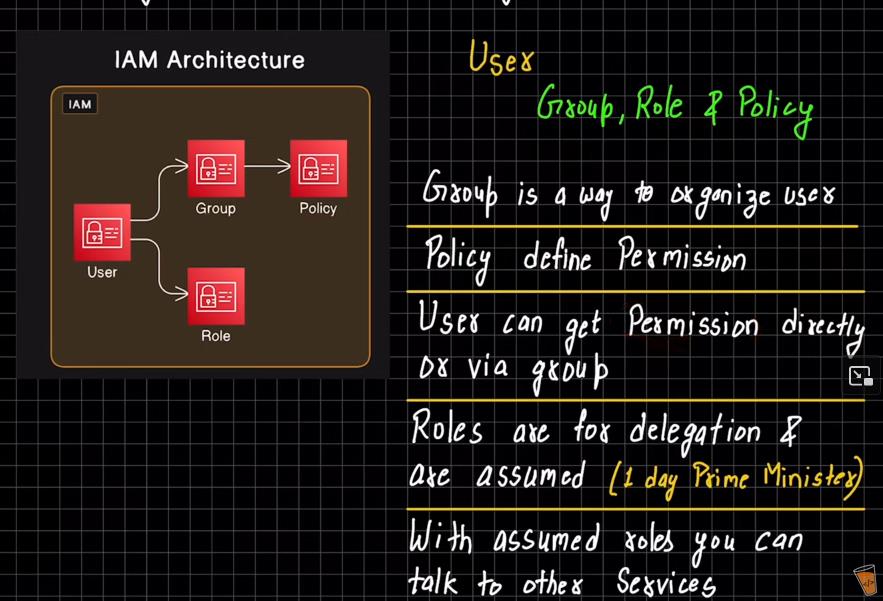 IAM Architecture
IAM
Group
Policy
User
Role
User
Group, Role & Policy
Group is a way to organize user
Policy define Permission
User can get Permission directly
or via group
Roles are for delegation &
are assumed (1 day Prime Minister)
With assumed roles you can
talk to other Services